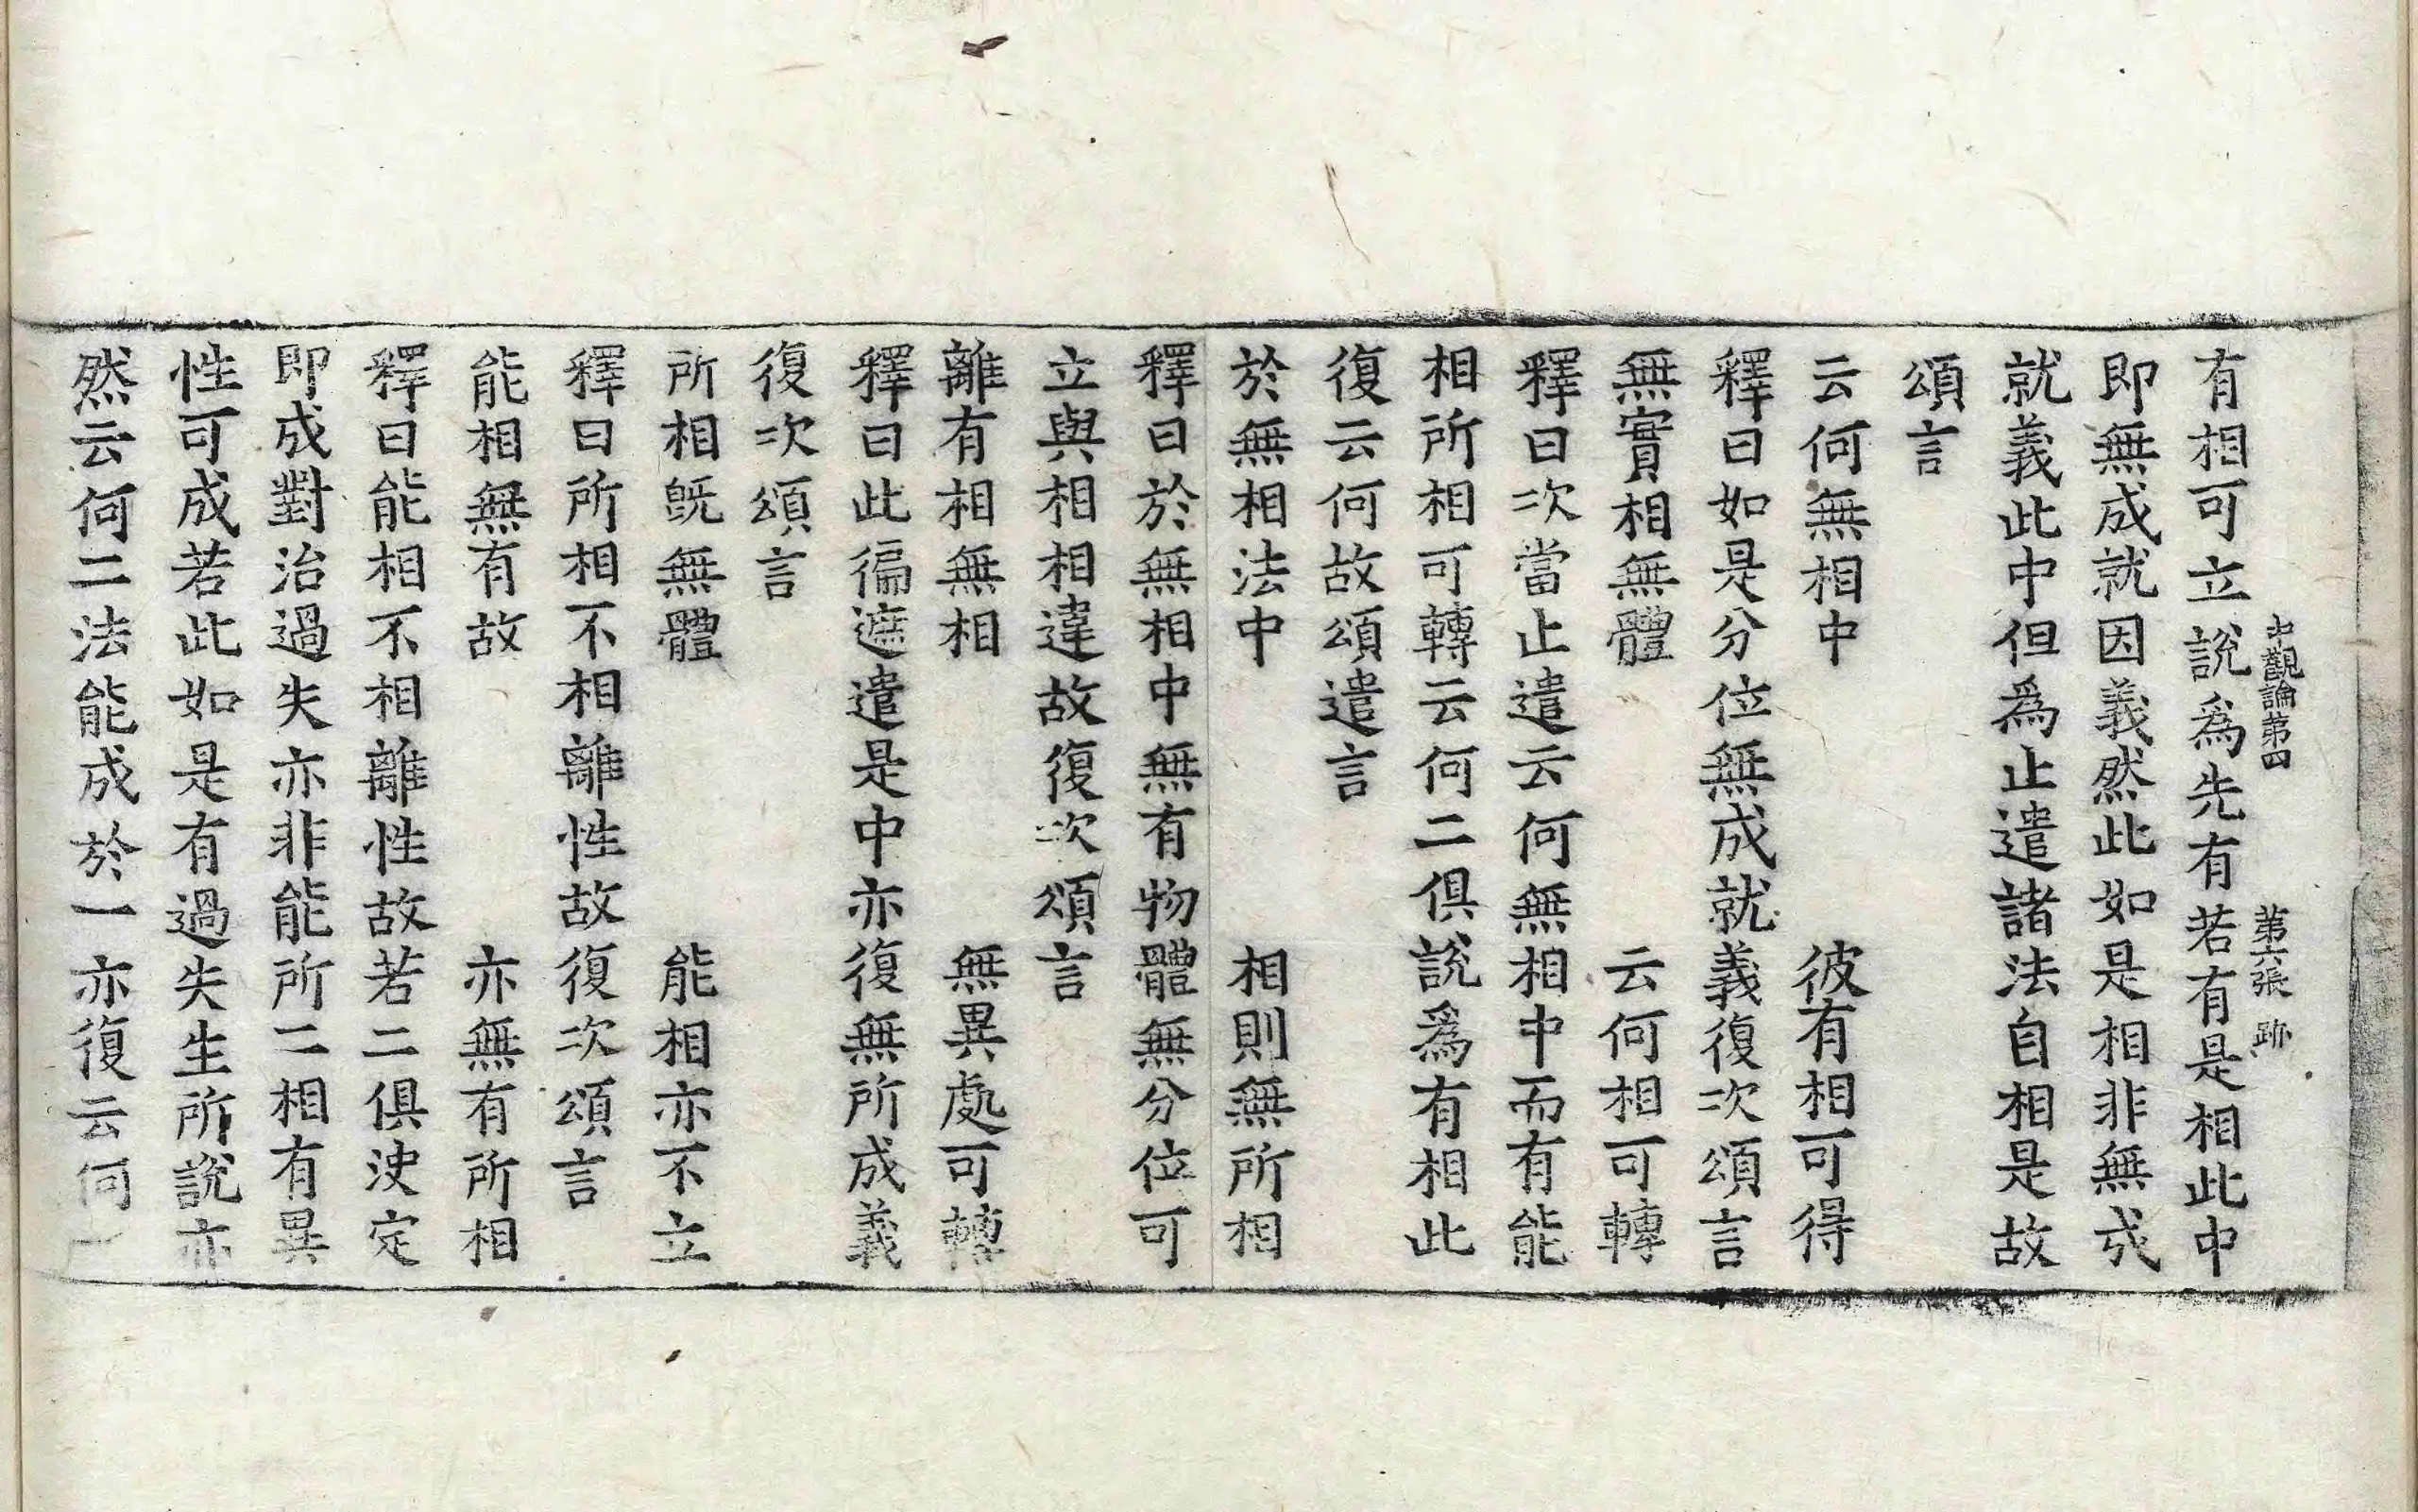 中觀論第四 第六張 跡
有相可立說爲先有若有是相此中
即無成就因義然此如是相非無成
就義此中但爲止遣諸法自相是故
頌言
云何無相中 彼有相可得
釋曰如是分位無成就義復次頌言
無實相無體 云何相可轉
釋曰次當止遣云何無相中而有能
相所相可轉云何二俱說爲有相此
復云何故頌遣言
於無相法中 相則無所相
釋曰於無相中無有物體無分位可
立與相相違故復次頌言
離有相無相 無異處可轉
釋曰此徧遮遣是中亦復無所成義
復次頌言
所相旣無體 能相亦不立
釋曰所相不相離性故復次頌言
能相無有故 亦無有所相
釋曰能相不相離性故若二俱決定
即成對治過失亦非能所二相有異
性可成若此如是有過失生所說亦
然云何二法能成於一亦復云何一